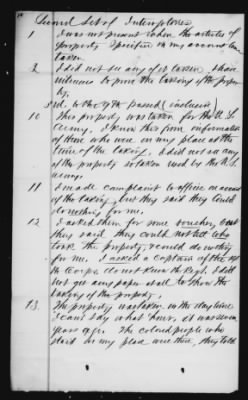 Second Set of Interrogatories
1 I was not present when the articles of
property specified in my account were
taken
2 I did not see any of it taken, I have
witnesses to prove the taking of the proper
ty.
3rd to the 9th passed (inclusive)
10 This property was taken for the U.S.
Army, I know this from information
of those who were on my place at the
time of the taking, I did not see any
of the property so taken used by the U.S.
Army.
11 I made complaint to officers on account
of the taking, but they said they could
do nothing for me.
12 I asked them for some voucher, but
they said they could not tell who
took the property & could do nothing
for me. I asked a Captain of the
Corps do not know the Regt. I did
not get any paper at all to show the
taking of this property.
13 The property was taken in the day time
I cant say what hour, it was seven
years ago. The colored people who
staid on my place were there, they told